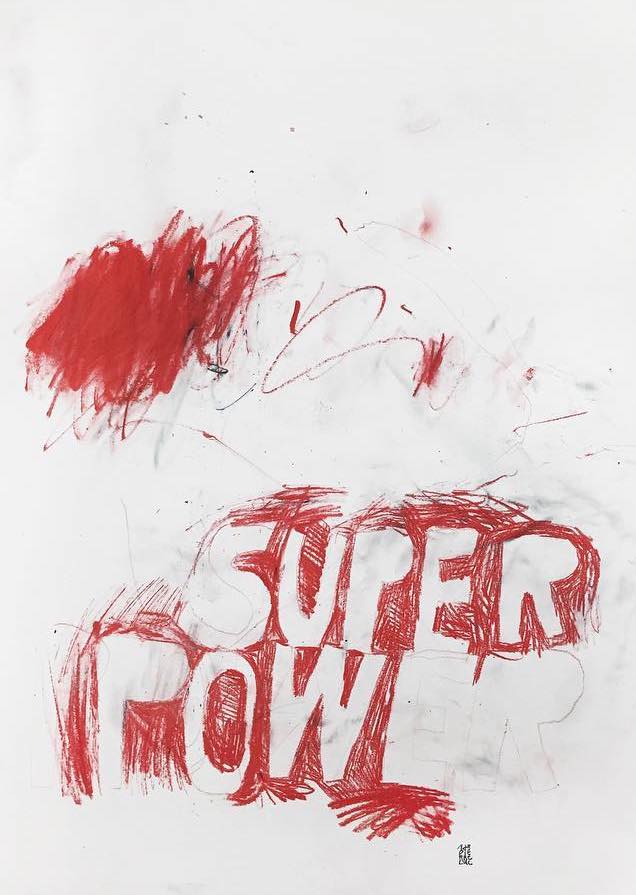 SUPER
POWER